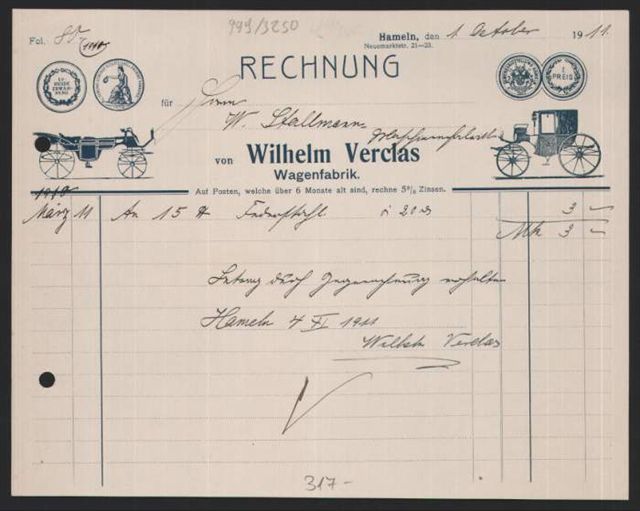 999/3250
Fol. 85
Hameln, den 1. October 1911.
Neuemarktstr. 21—23.
RECHNUNG
I. PREIS
für Herrn
W. Stallmann
von Wilhelm Verclas
Wagenfabrik.
Auf Posten, welche über 6 Monate alt sind, rechne 5% Zinsen.
1910
März 11 An 15 ℔ Federstahl à 20 ₰ 3 —
Mk 3 —
Betrag durch Gegenrechnung erhalten
Hameln 4 XI 1911
Wilhelm Verclas
317-